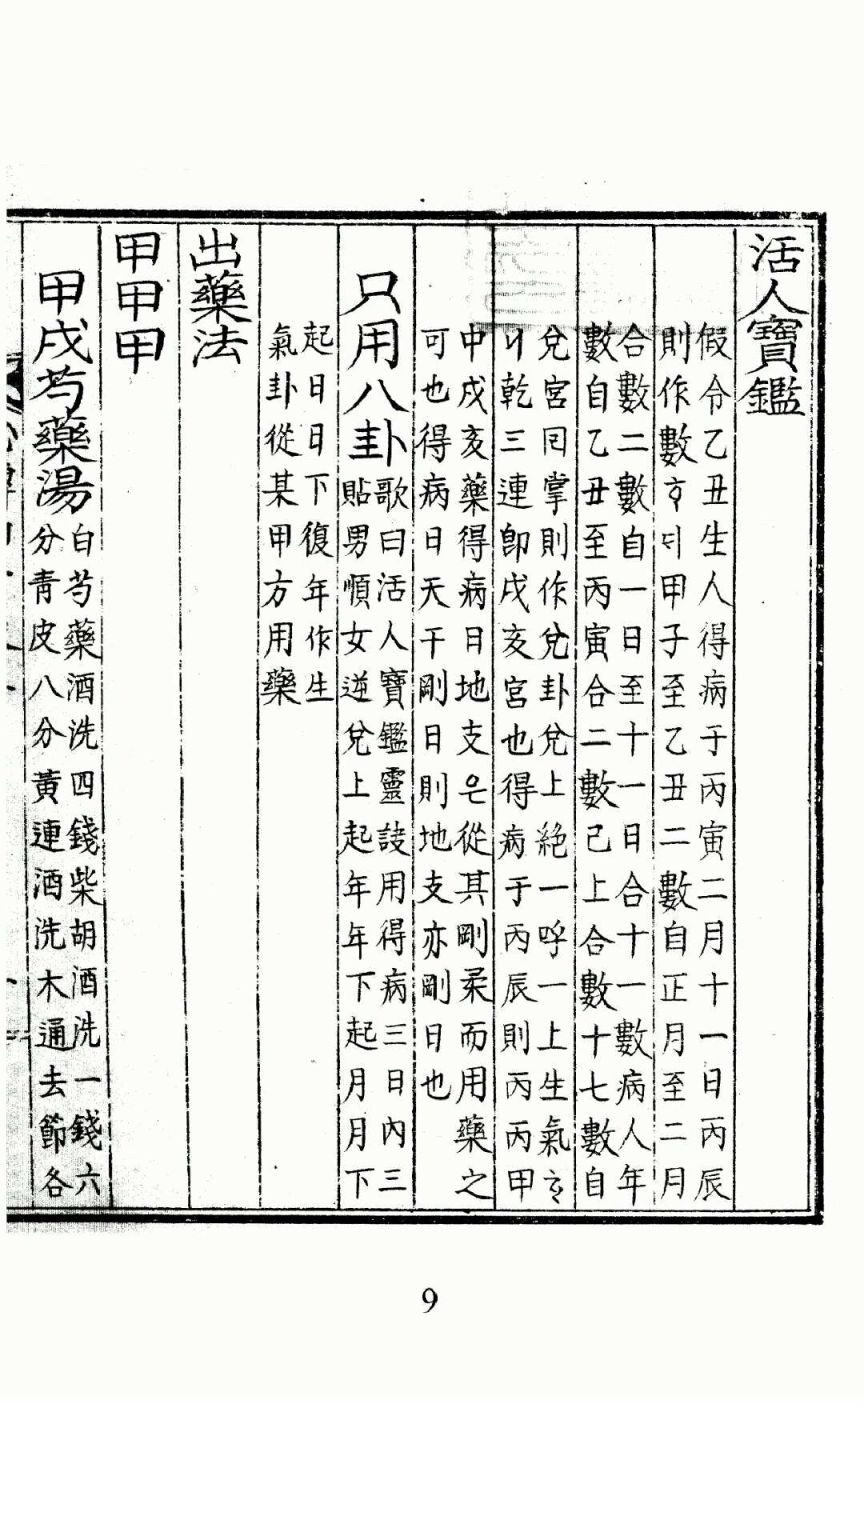 活人寶鑑
假令乙丑生人得病于丙寅二月十一日丙辰
則作數ᄒᆞ되甲子至乙丑二數自正月至二月
合數二數自一日至十一日合十一數病人年
數自乙丑至丙寅合二數已上合數十七數自
兌宮囘掌則作兌卦兌上絶一呼一上生氣ᄒᆞ
니乾三連卽戌亥宮也得病于丙辰則丙丙甲
中戌亥藥得病日地支은從其剛柔而用藥之
可也得病日天干剛日則地支亦剛日也
只用八卦
歌曰活人寶鑑靈訣用得病三日內三
貼男順女逆兌上起年年下起月月下
起日日下復年作生
氣卦從某甲方用藥
出藥法
甲甲甲
甲戌芍藥湯
白芍藥酒洗四錢柴胡酒洗一錢六
分靑皮八分黃連酒洗木通去節各
9